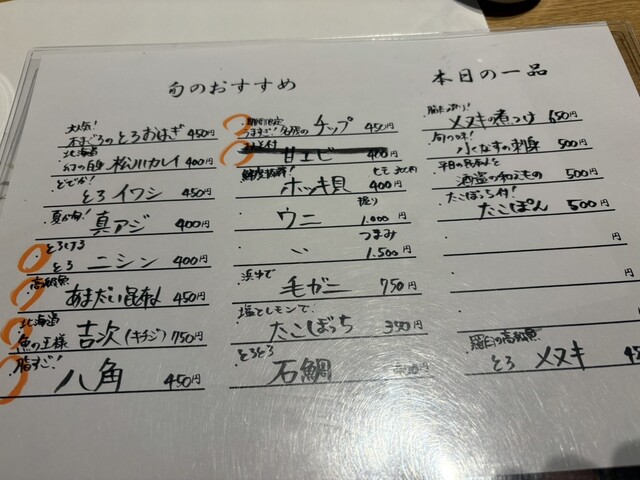 旬のおすすめ
大人気!
本まぐろのとろおはぎ 450円
北海道
幻の白身 松川カレイ 400円
とろ イワシ 450円
夏が旬!
真アジ 400円
とろける
とろ ニシン 400円
高級魚
あまだい昆布〆 450円
北海道
魚の王様 吉次(キチジ) 750円
脂すご!
八角 450円
期間限定
チップ 450円
甘エビ 400円
鮮度抜群!
ホッキ貝 400円
ウニ
握り
1,000円
つまみ
〃 1,500円
浜ゆで
毛ガニ 750円
塩とレモンで
たこぼっち 350円
とろとろ
石鯛 円
本日の一品
メヌキの煮つけ 650円
水なすの刺身 500円
平目の昆布〆と
酒盗の和えもの 500円
たこぼっち付!
たこぽん 500円
円
円
羅臼の高級魚
とろ メヌキ